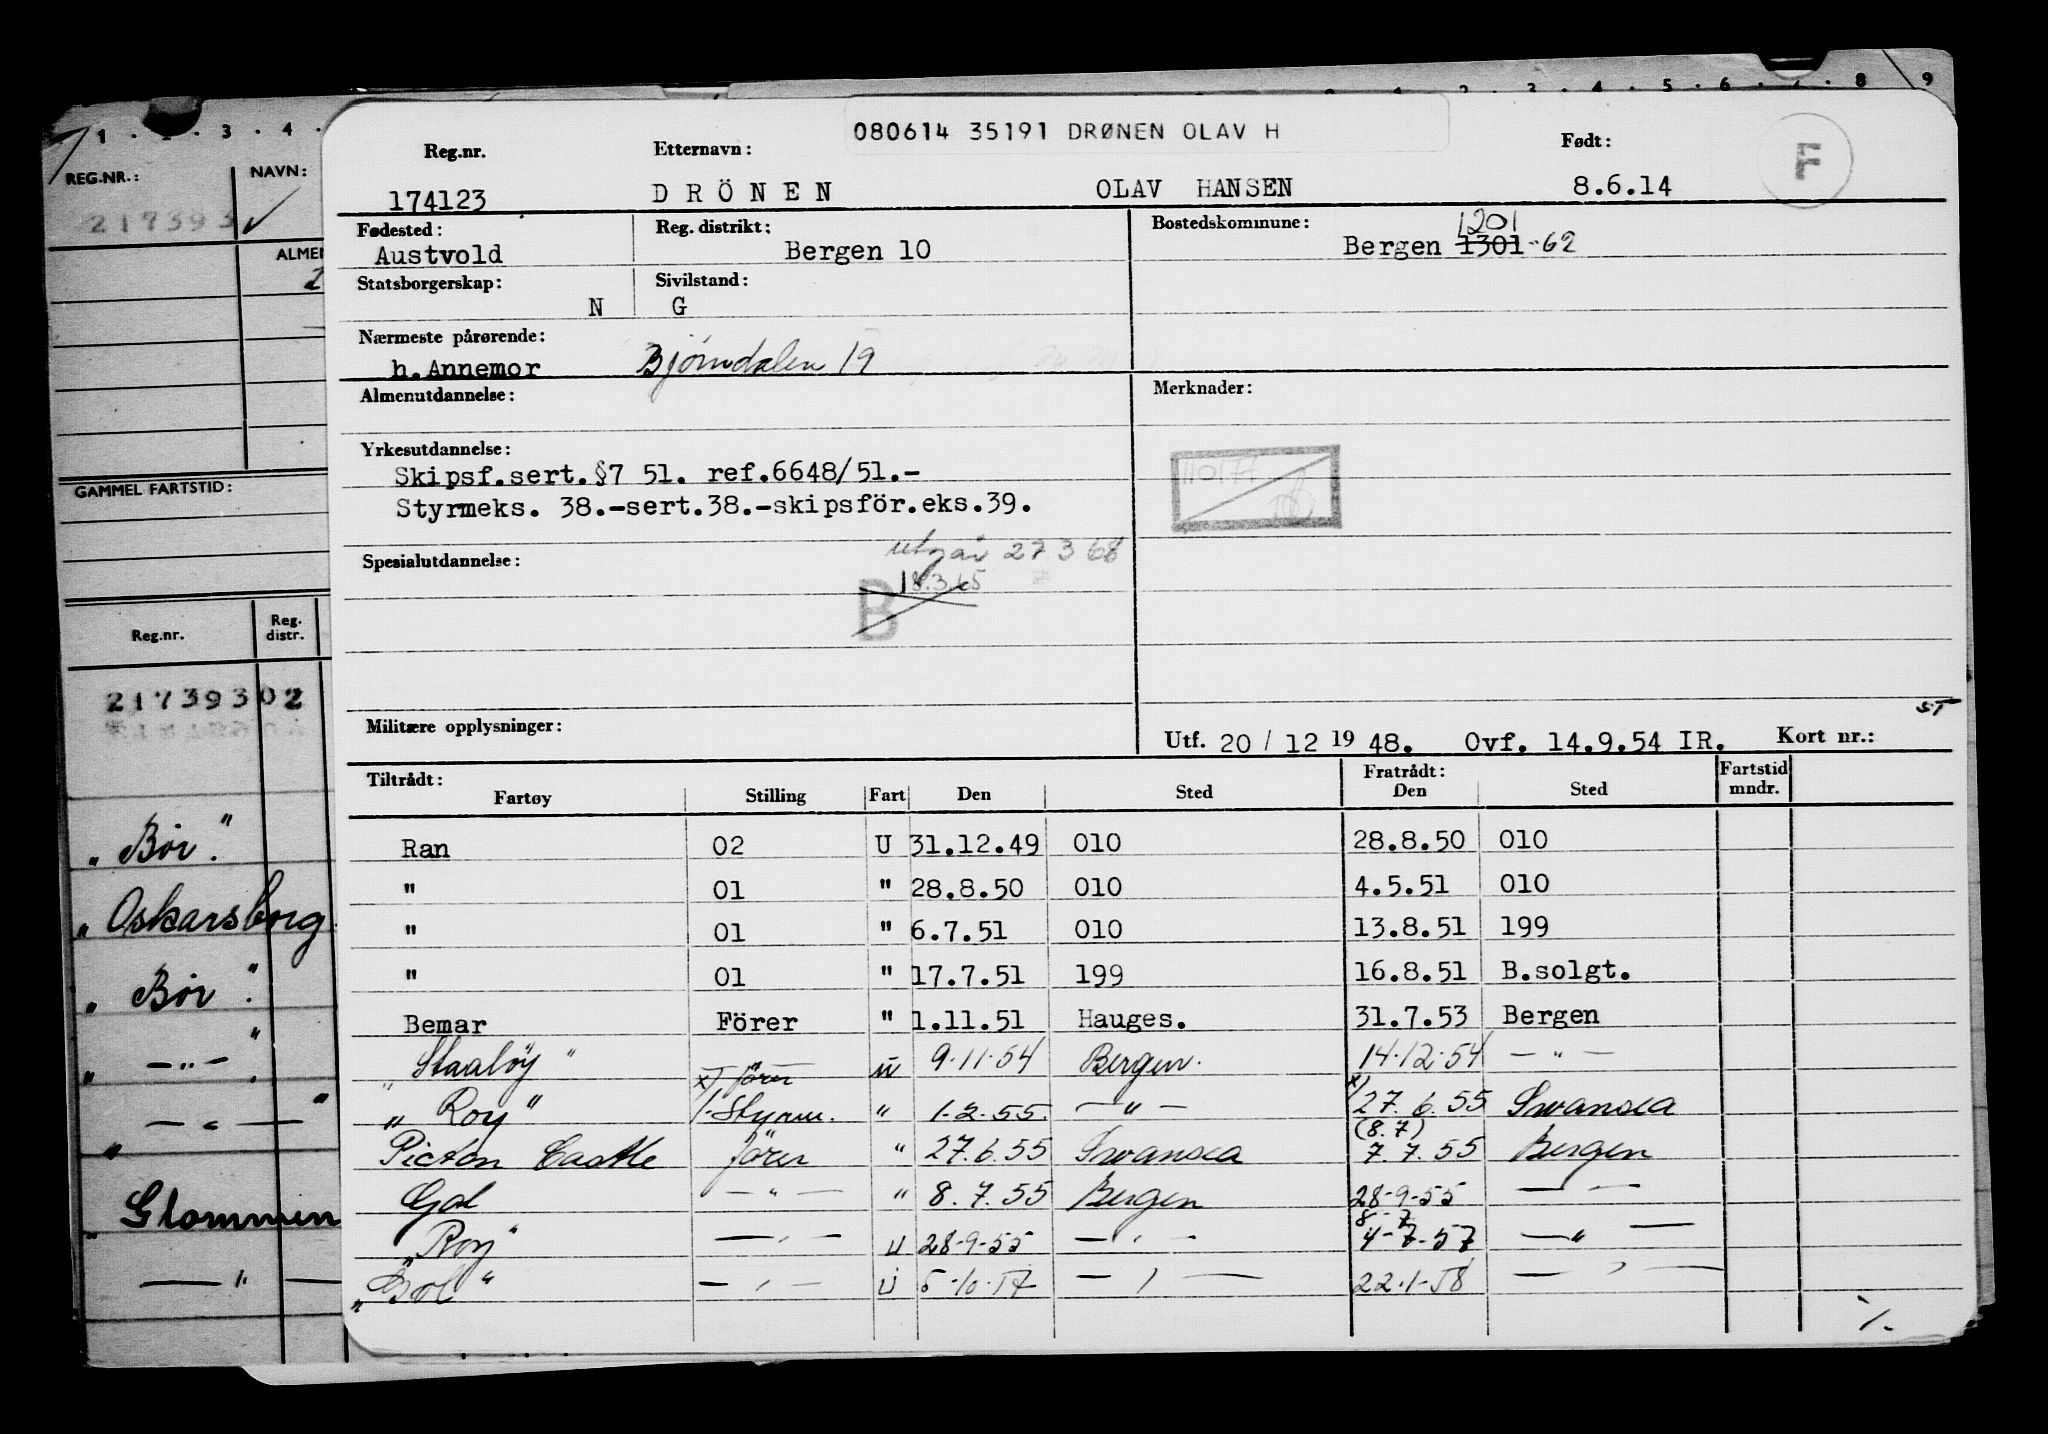 1 . 2 . 3 . 4 .
2 . 3 . 4 . 5 . 6 . 7 . 8 9
REG.NR.: NAVN:
217393
ALMEN
GAMMEL FARTSTID:
Reg.nr. Reg. distr.
21739302
„ Bör."
„ Oskarsborg
„ Bör."
„ — „ — "
„ — „ — "
„ Glommen
— " —
080614 35191 DRØNEN OLAV H
Reg.nr. Etternavn: Født: F
174123 DRÖNEN OLAV HANSEN 8.6.14
Fødested: Reg. distrikt: Bostedskommune: 1201
Austvold Bergen 10 Bergen 1301-62
Statsborgerskap: Sivilstand:
N G
Nærmeste pårørende:
h.Annemor Bjørndalen 19
Almenutdannelse: Merknader:
Yrkesutdannelse:
Skipsf.sert.§7 51. ref.6648/51.-
110177
Styrmeks. 38.-sert.38.-skipsför.eks.39.
utgår 27 3 68
Spesialutdannelse:
B 18.3.65
ST
Militære opplysninger: Utf. 20 / 12 19 48. Ovf. 14.9.54 IR. Kort nr.:
Tiltrådt: Fratrådt: Fartstid mndr.
Fartøy Stilling Fart Den Sted Den Sted
Ran 02 U 31.12.49 010 28.8.50 010
" 01 " 28.8.50 010 4.5.51 010
" 01 " 6.7.51 010 13.8.51 199
" 01 " 17.7.51 199 16.8.51 B.solgt.
Bemar Förer " 1.11.51 Hauges. 31.7.53 Bergen
„ Staalöy " — u 9.11.54 Bergen. 14.12.54 — " —
x) förer x)
„ Roy" 1.Styrm. " 1.2.55. — " — 27.6.55 Swansea
(8.7)
Picton Castle förer " 27.6.55 Swansea 7.7.55 Bergen
Gol — " — " 8.7.55 Bergen 28-9-55 — " —
8-7
„ Roy" — " — u 28-9-55 — " — 4-7-57 — " —
„ Gol " — " — u 5-10-57 — " — 22.1-58 — " —
%.